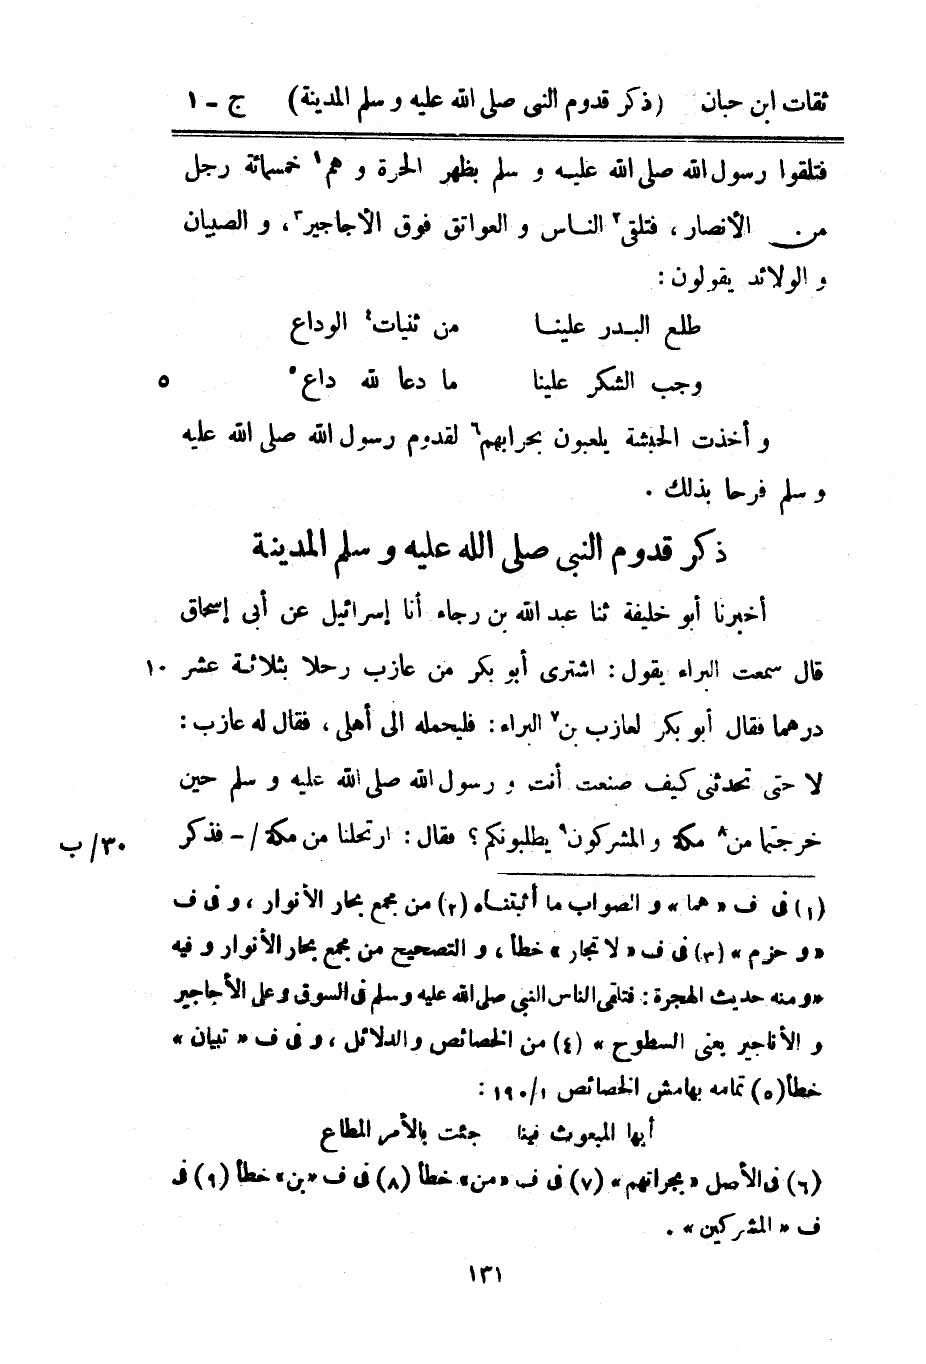 ثقات ابن حبان (ذكر قدوم النبى صلى الله عليه و سلم المدينة) ج - ١
فتلقوا رسول الله صلى الله عليه و سلم بظهر الحرة و هم١ خمسمائة رجل
من الأنصار ، فتلقى٢ الناس و العواتق فوق الأجاجير٣، و الصبيان
و الولائد يقولون :
طلع البدر علينا من ثنيات٤ الوداع
وجب الشكر علينا ما دعا لله داع٥ ٥
و أخذت الحبشة يلعبون بحرابهم٦ لقدوم رسول الله صلى الله عليه
و سلم فرحا بذلك .
ذكر قدوم النبى صلى الله عليه و سلم المدينة
أخبرنا أبو خليفة ثنا عبد الله بن رجاء أنا إسرائيل عن أبى إسحاق
قال سمعت البراء يقول : اشترى أبو بكر من عازب رحلا بثلاثة عشر ١٠
درهما فقال أبو بكر لعازب بن٧ البراء : فليحمله الى أهلى ، فقال له عازب :
لا حتى تحدثنى كيف صنعت أنت و رسول الله صلى الله عليه و سلم حين
خرجتما من٨ مكة و المشركون٩ يطلبونكم؟ فقال : ارتحلنا من مكة / - فذكر ٣٠/ ب
(١) فى ف « هما » و الصواب ما أثبتناه (٢) من مجمع بحار الأنوار ، و فى ف
« و حزم » (٣) فى ف « لا تجار » خطأ ، و التصحيح من مجمع بحار الأنوار و فيه
«و منه حديث الهجرة : فتلقى الناس النبي صلى الله عليه وسلم فى السوق و على الأجاجير
و الأناجير يعنى السطوح » (٤) من الخصائص و الدلائل ، و فى ف « تبيان »
خطأ (٥) تمامه بهامش الخصائص ١/ ١٩٠ :
أيها المبعوث فينا جئت بالأمر المطاع
(٦) فى الأصل « بجرانهم » (٧) فى ف «من» خطأ (٨) فى ف «بن» خطأ (٩) فى
ف « المشركين » .
١٣١